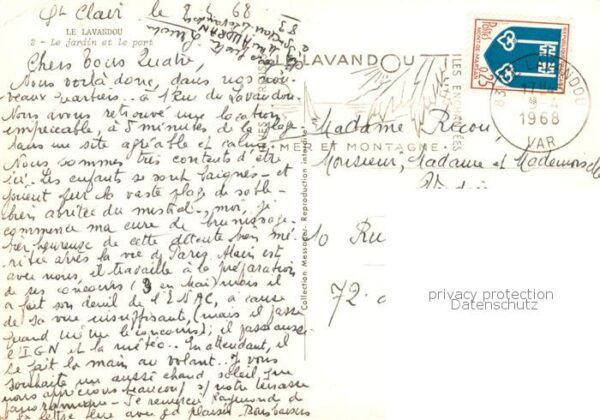 St Clair le 8-4-68
LE LAVANDOU
2 - Le jardin et le port
Chers tous Quatre,
Nous voilà donc, dans nos nou-
veaux quartiers.. à 1 km du Lavandou.
Nous avons retrouvé une location
impeccable, à 5 minutes de la plage
dans une site agréable et calme
Nous sommes très contents d'être
ici. Les enfants se sont baignés - et
jouent sur la vaste plage de sable
bien abritée du mistral, moi, je
commence ma cure de brunissage.
bien heureuse de cette détente bien mé-
ritée après la vie de Paris. Alain est
avec nous, il travaille à la préparation
de ses concours (3 en Mai) mais il
a fait son deuil de l'ENAC, à cause
de sa vue insuffisant, (mais il passe
quand même le concours); il passe aussi
l'IGN et la météo.. En attendant, il
se fait la main au volant. Je vous
souhaite un aussi chaud soleil que
nous apprécions beaucoup s/ notre terrasse
panoramique - Je remercie Raymond de
sa lettre lue avec gd plaisir. Bons baisers
LAVANDOU
MER ET MONTAGNE
Collection Messager - Reproduction interdite
REPUBLIQUE FRANÇAISE
POSTES
0,25
MONT-DE-MARSAN
LE LAVANDOU
1968
VAR
Madame Picou
Monsieur, Madame et Mademoiselle
10 Ru
72 -
privacy protection
Datenschutz